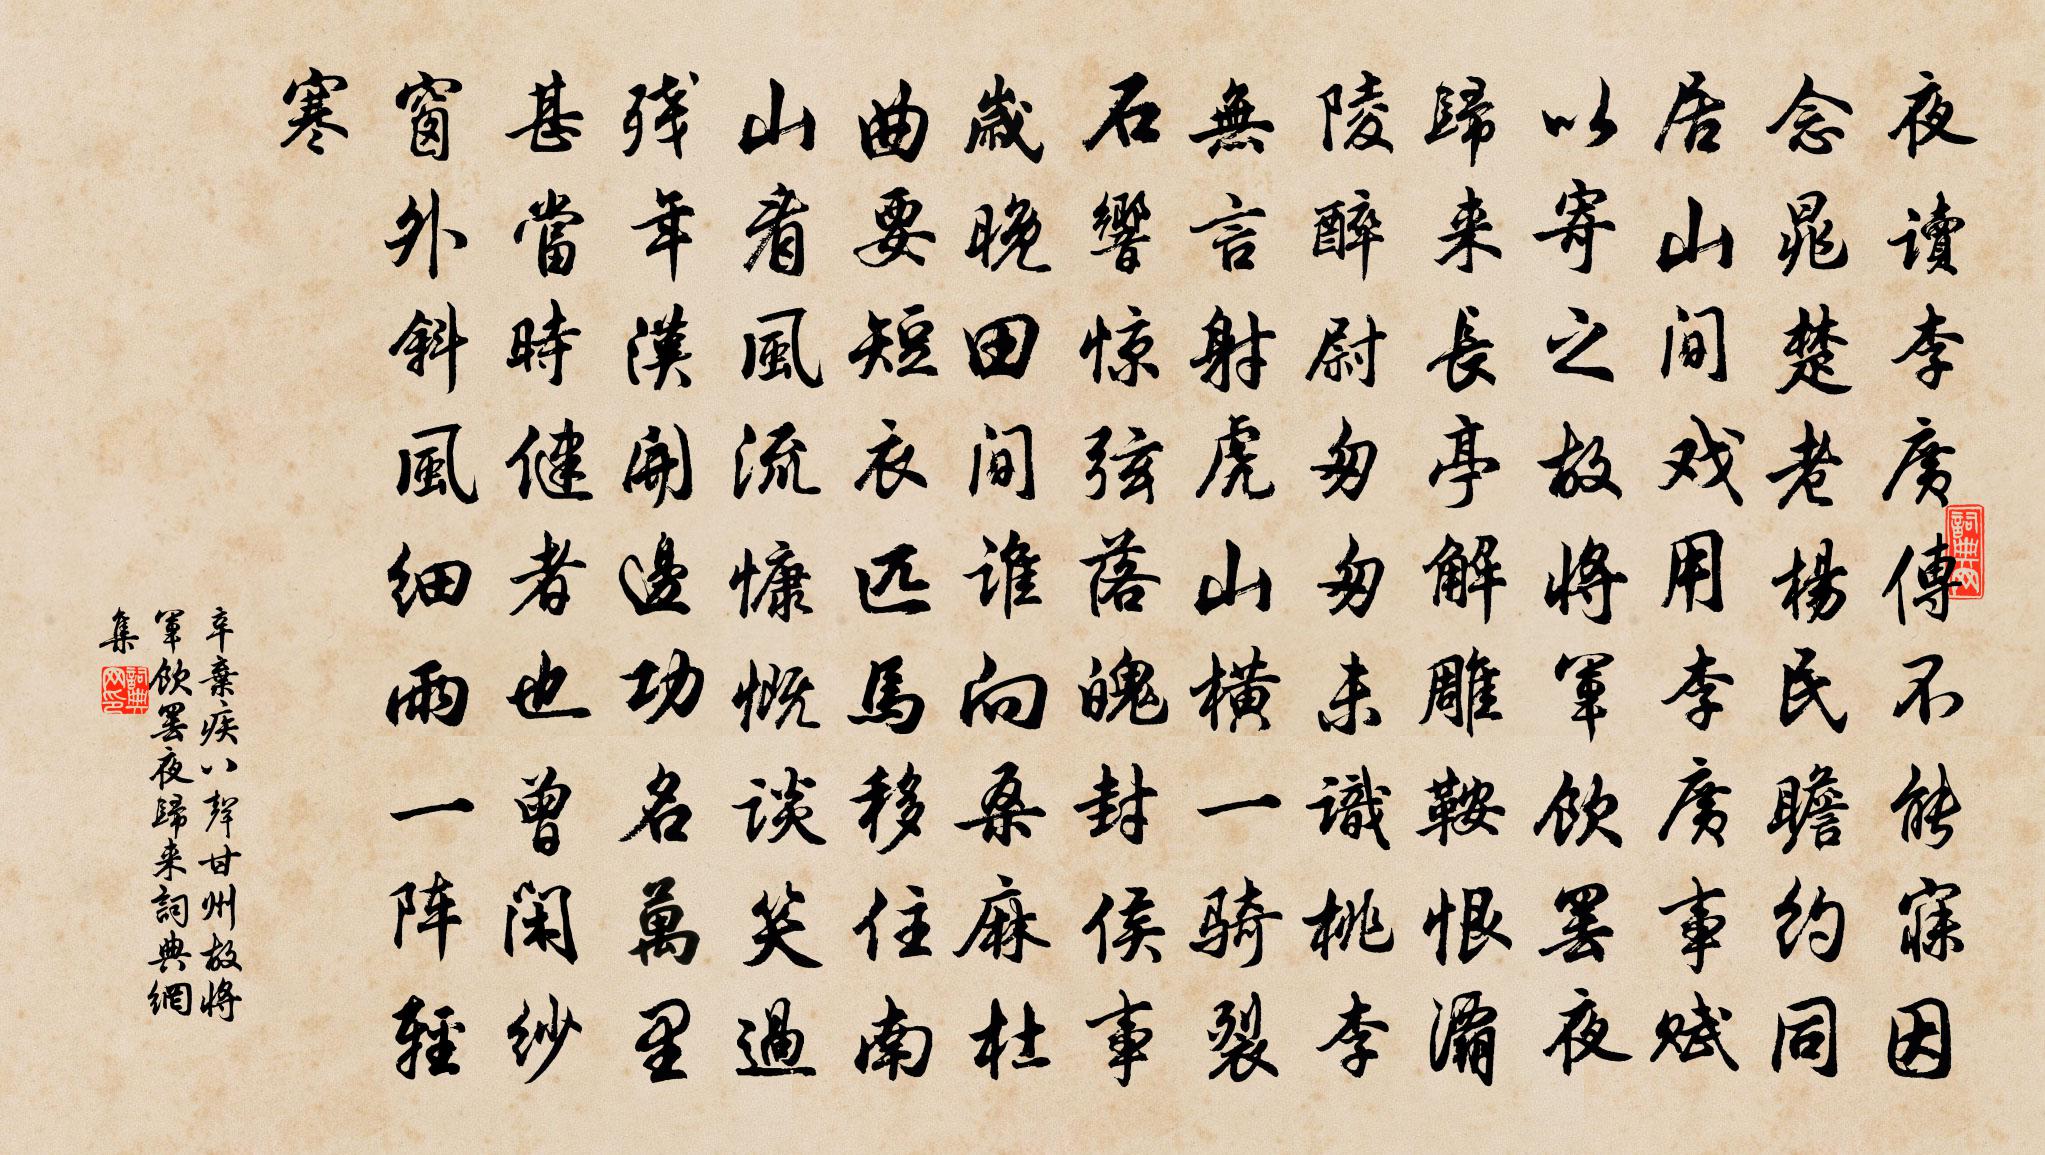 夜讀李廣傳不能寐因
念晁楚老楊民瞻約同
居山间戏用李廣事赋
以寄之故将軍飲罢夜
歸来長亭解雕鞍恨灞
陵醉尉匆匆未識桃李
無言射虎山横一骑裂
石響惊弦落魄封侯事
歲晚田间谁向桑麻杜
曲要短衣匹馬移住南
山看風流慷慨談笑過
残年漢開邊功名萬里
甚當時健者也曾閑紗
窗外斜風細雨一阵輕
寒
辛棄疾八聲甘州故将
軍飲罢夜歸来詞典網
集
詞典网
詞典网印